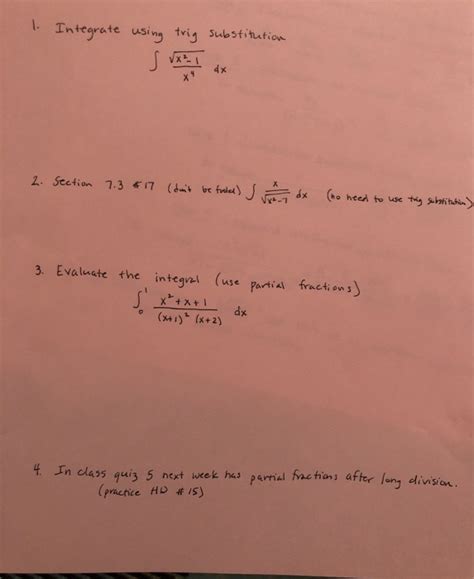 1. Integrate using trig substitution
∫ √(x²-1) / x⁴ dx
2. Section 7.3 #17 (don't be fooled) ∫ x / √(x²-7) dx (no need to use trig substitution)
3. Evaluate the integral (use partial fractions)
∫₀¹ (x²+x+1) / ((x+1)² (x+2)) dx
4. In class quiz 5 next week has partial fractions after long division.
(practice HW #15)